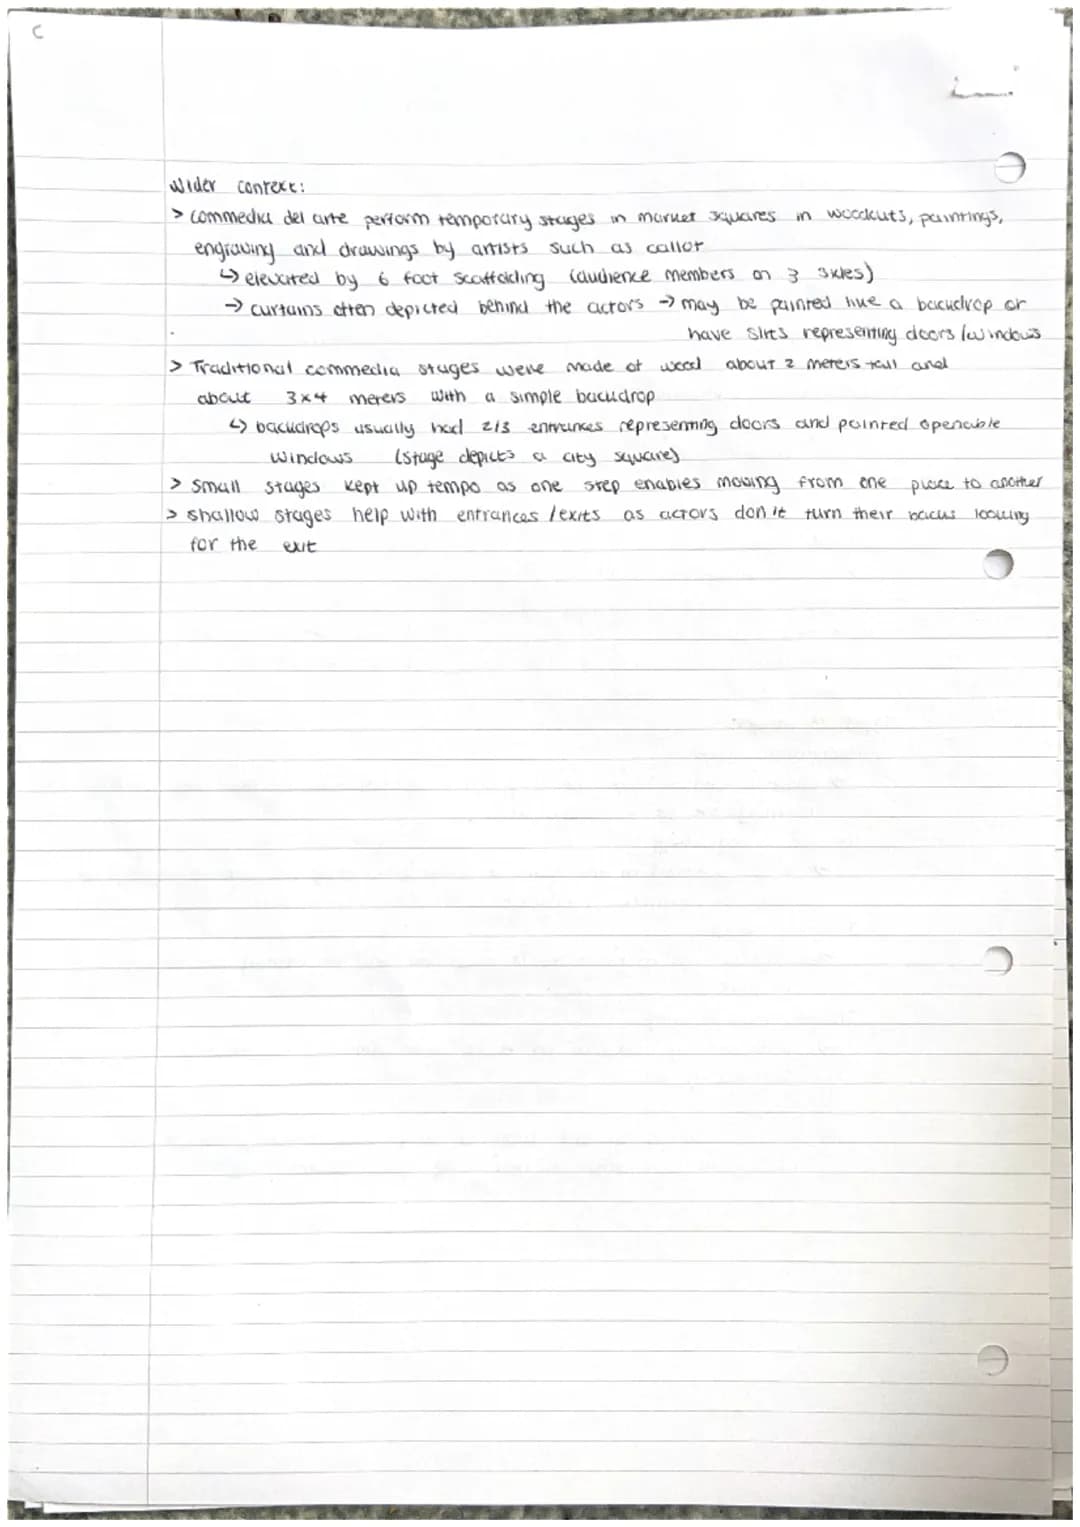 Wider context:
> commedia del arte perform temporary stages in market squares in woodcuts, paintings,
engraving and drawings by artists such as callot
↳ elevated by 6 foot scaffolding (audience members on 3 sides)
→ curtains often depicted behind the actors → may be painted like a backdrop or
have slits representing doors/windows
> Traditional commedia stages were made of wood about 2 meters tall and
about 3x4 meters with a simple backdrop
↳ backdrops usually had 2/3 entrances representing doors and painted openable
windows (stage depicts a city square)
> Small stages kept up tempo as one step enables moving from one place to another
> shallow stages help with entrances/exits as actors don't turn their backs looking
for the exit